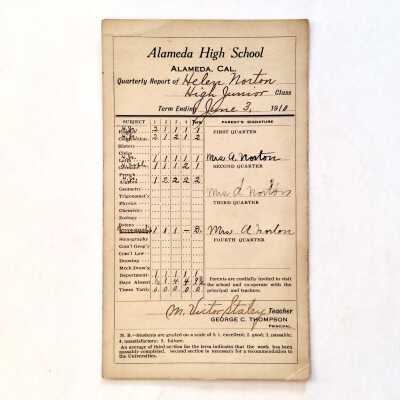 Alameda High School
ALAMEDA, CAL.
Quarterly Report of Helen Norton
High Junior Class
Term Ending June 3, 1910
SUBJECT 1 2 3 4 PARENT'S SIGNATURE
2 1 1 1 1
2 1 2 1 2 FIRST QUARTER
History
Civics
1 1 1 1 1 Mrs A. Norton
1 1 1 2 1 SECOND QUARTER
French
1 2 2 2 2
Geometry Mrs A Norton
Trigonomet'y
Physics THIRD QUARTER
Chemistry
Zoology
Botany
1 1 1 - B. Mrs A Norton
Stenography FOURTH QUARTER
Com'l Geog'y
Com'l Law
Drawing
Mech. Draw'g
Department 1 1 1 1 1 Parents are cordially invited to visit
Days Absent the school and co-operate with the
Times Tardy 0 0 0 0 0 principal and teachers.
M. Victor Staley Teacher
GEORGE C. THOMPSON
PRINCIPAL
N. B.—Students are graded on a scale of 5: 1, excellent; 2, good; 3, passable;
4, unsatisfactory; 5, failure.
An average of third section for the term indicates that the work has been
passably completed. second section is necessary for a recommendation to
the Universities.